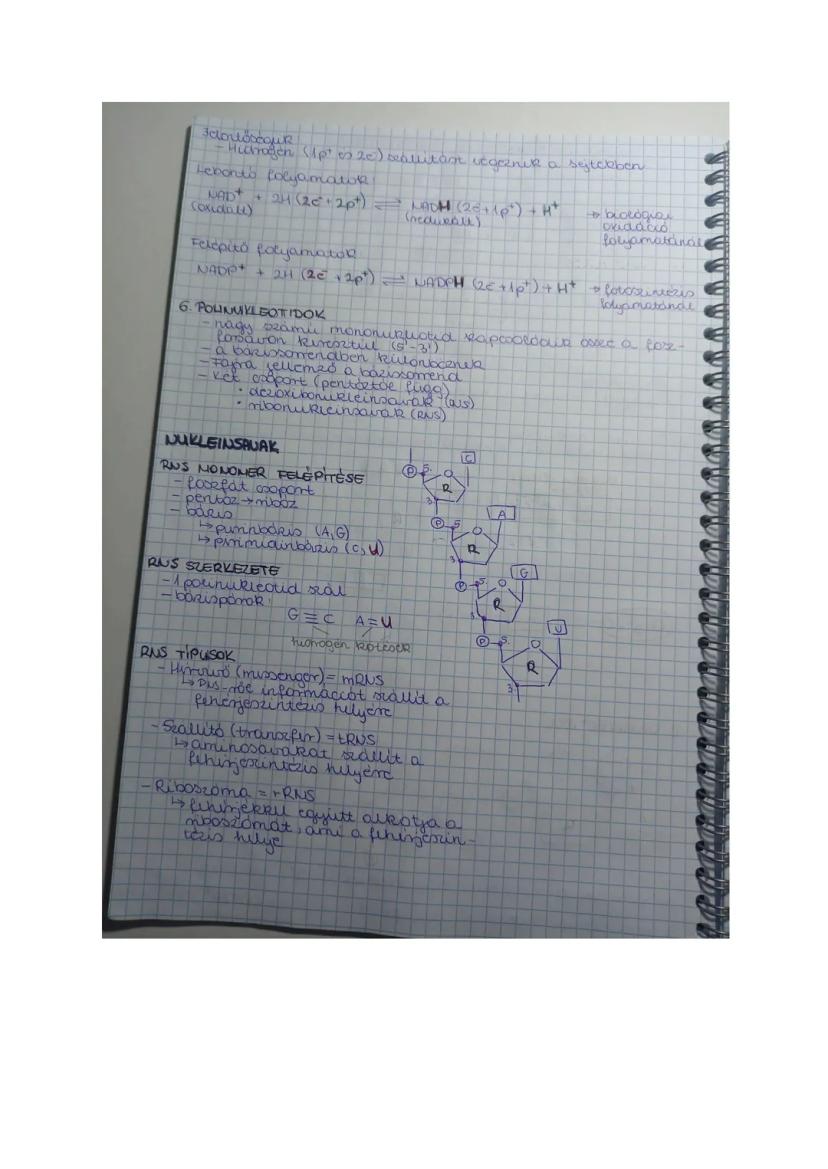 Jelentőségük
- Hidrogén (1p⁺ és 2e⁻) szállítást végeznek a sejtekben
Lebontó folyamatok:
NAD⁺ + 2H (2e⁻ + 2p⁺) ⇌ NADH (2e⁻ + 1p⁺) + H⁺ → biológiai
(oxidált) (redukált) oxidáció
folyamatánál
Felépítő folyamatok
NADP⁺ + 2H (2e⁻ + 2p⁺) ⇌ NADPH (2e⁻ + 1p⁺) + H⁺ → fotoszintézis
folyamatánál
6. POLINUKLEOTIDOK
- nagy számú mononukleotid kapcsolódik össze a fosz-
forsavon keresztül (5'-3')
- a bázissorrendben különböznek
- Fajra jellemző a bázissorrend
- Két csoport (pentóztól függ)
• dezoxiribonukleinsavak (DNS)
• ribonukleinsavak (RNS)
NUKLEINSAVAK
RNS MONOMER FELÉPÍTÉSE
- foszfát csoport
- pentóz → ribóz
- bázis
↳ purinbázis (A, G)
↳ pirimidinbázis (C, U)
P 5. O C
R
3
P 5 O A
R
3
P 5. O G
R
3
P 5. O U
R
3
RNS SZERKEZETE
- 1 polinukleotid szál
- bázispárok:
G ≡ C A = U
hidrogén kötések
RNS TÍPUSOK
- Hírvivő (messenger) = mRNS
↳ DNS-ről információt szállít a
fehérjeszintézis helyére
- Szállító (transzfer) = tRNS
↳ aminosavakat szállít a
fehérjeszintézis helyére
- Riboszóma = rRNS
↳ fehérjékkel együtt alkotja a
riboszómát, ami a fehérjeszin-
tézis helye